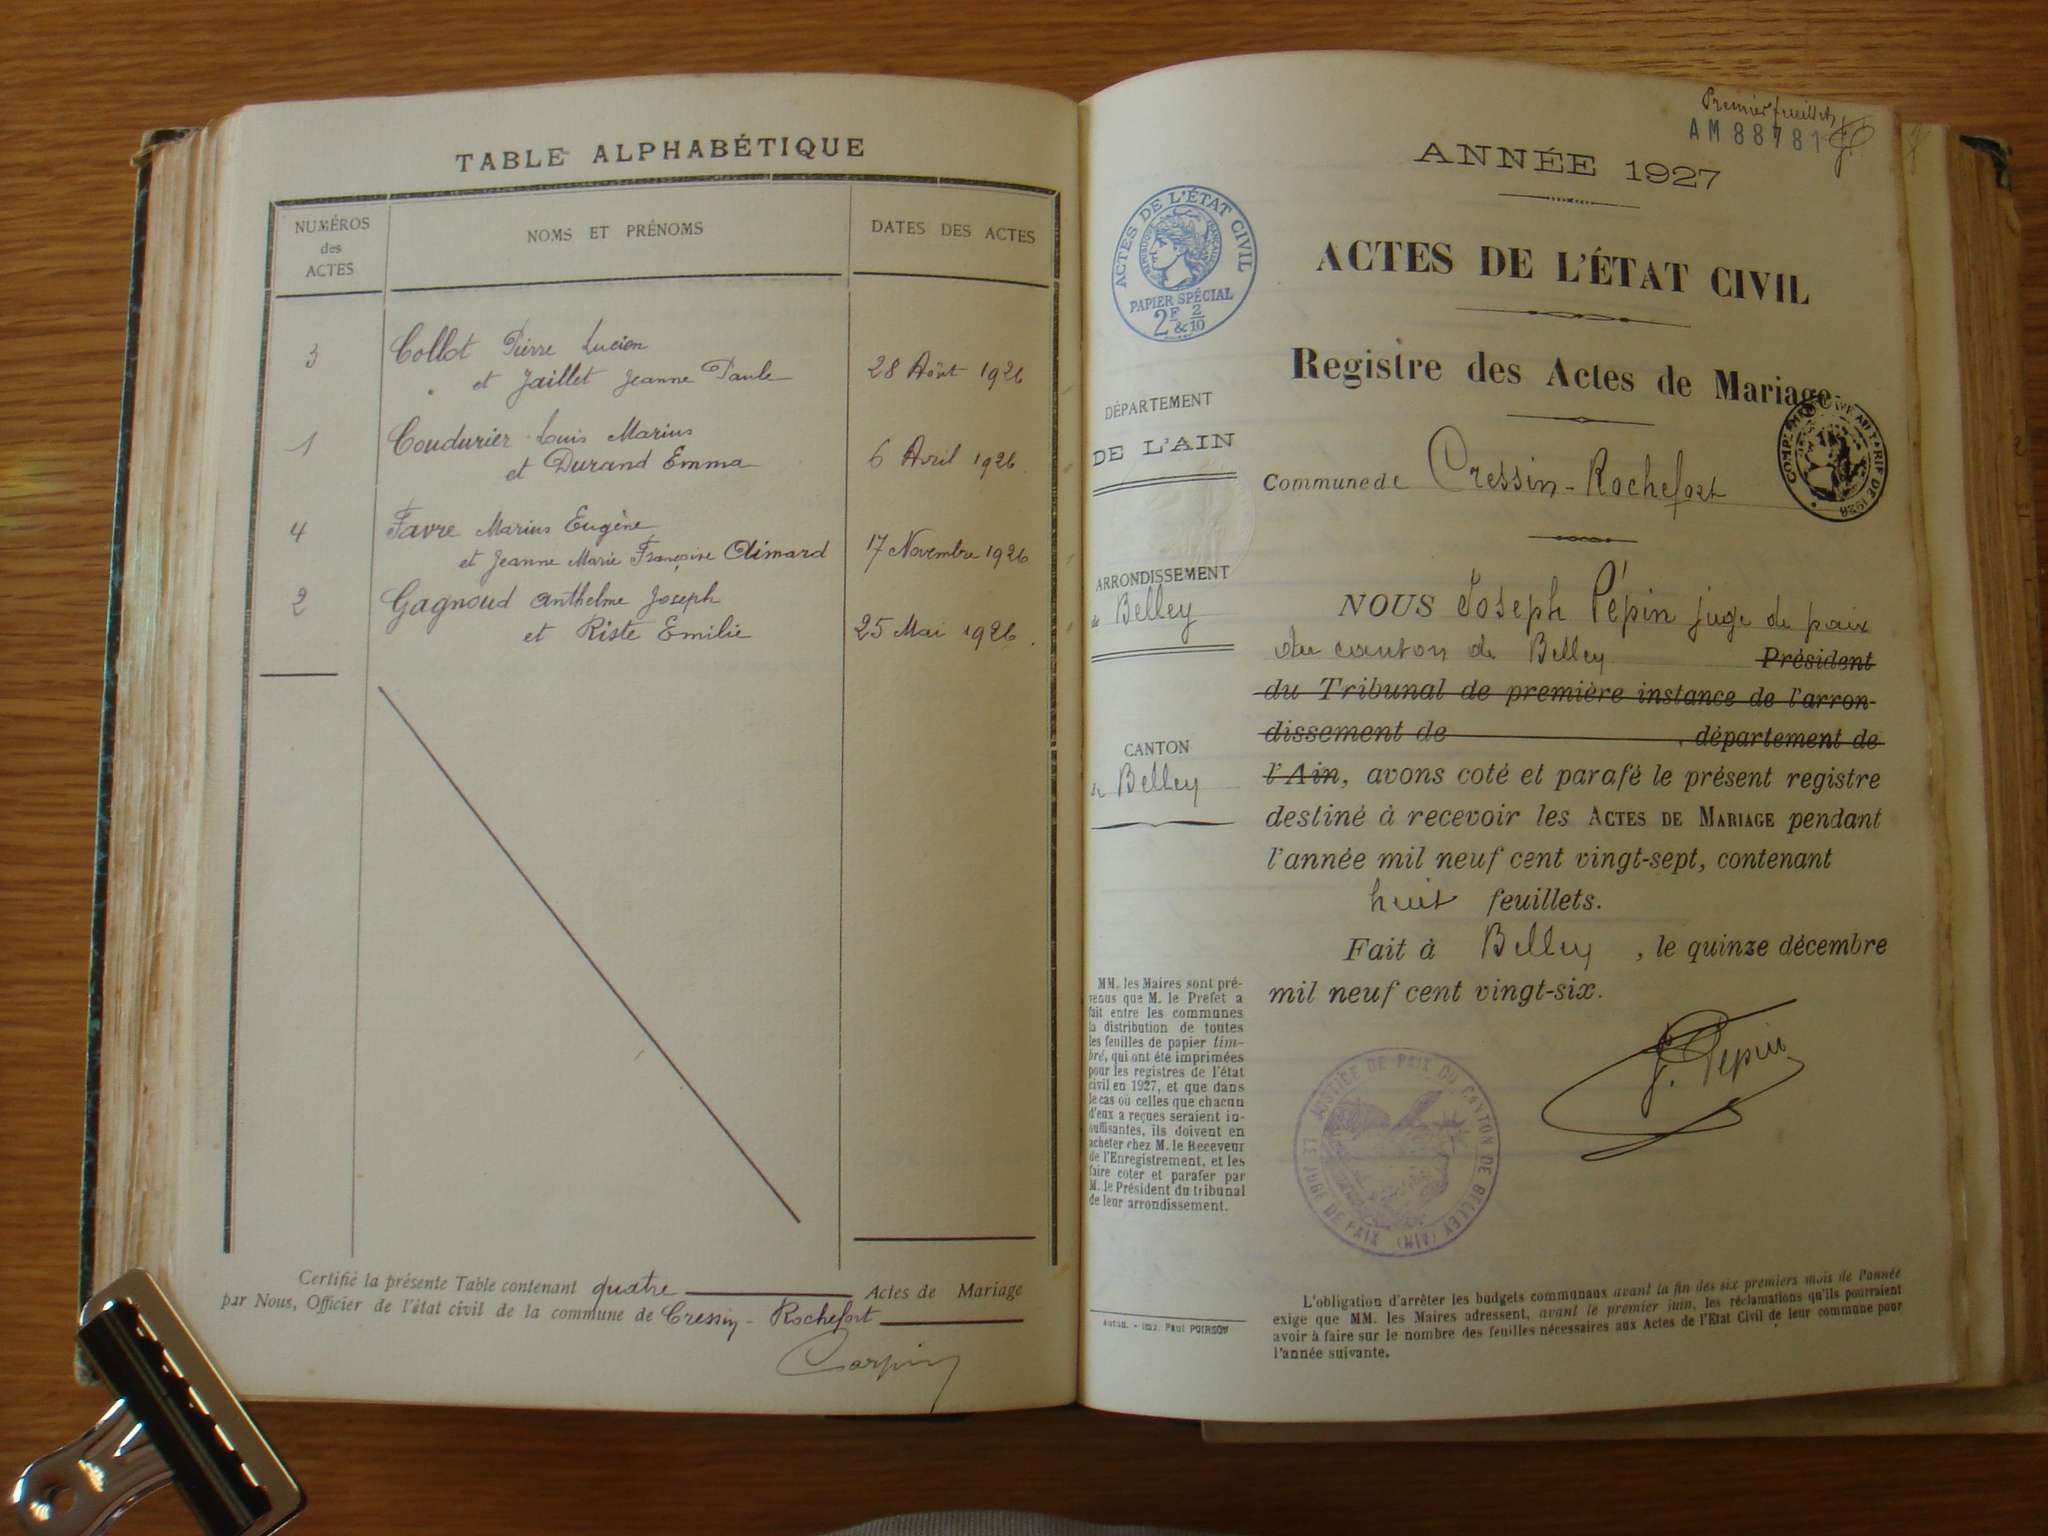 TABLE ALPHABÉTIQUE
NUMÉROS
des
ACTES
NOMS ET PRÉNOMS
DATES DES ACTES
3
Collot Pierre Lucien
et Jaillet Jeanne Paule
28 Août 1926
1
Coudurier Louis Marius
et Durand Emma
6 Avril 1926.
4
Favre Marius Eugène
et Jeanne Marie Françoise Climard
17 Novembre 1926
2
Gagnoud Anthelme Joseph
et Riste Emilie
25 Mai 1926.
Certifié la présente Table contenant quatre Actes de Mariage
par Nous, Officier de l'état civil de la commune de Cressin-Rochefort
Carpin
Premier feuillet
AM 88781
ANNÉE 1927
ACTES DE L'ÉTAT CIVIL
RÉPUBLIQUE FRANÇAISE
PAPIER SPÉCIAL
2F & 2/10
ACTES DE L'ÉTAT CIVIL
Registre des Actes de Mariage
COMPLÉMENT AU TARIF DE 1926
DÉPARTEMENT
DE L'AIN
Commune de Cressin-Rochefort
ARRONDISSEMENT
de Belley
CANTON
de Belley
NOUS Joseph Pépin juge de paix
du canton de Belley Président
du Tribunal de première instance de l'arron-
dissement de , département de
l'Ain, avons coté et parafé le présent registre
destiné à recevoir les ACTES DE MARIAGE pendant
l'année mil neuf cent vingt-sept, contenant
huit feuillets.
Fait à Belley, le quinze décembre
mil neuf cent vingt-six.
J. Pepin
JUSTICE DE PAIX DU CANTON DE BELLEY (AIN)
LE JUGE DE PAIX
MM. les Maires sont pré-
venus que M. le Prefet a
fait entre les communes
la distribution de toutes
les feuilles de papier tim-
bré, qui ont été imprimées
pour les registres de l'état
civil en 1927, et que dans
le cas où celles que chacun
d'eux a reçues seraient in-
suffisantes, ils doivent en
acheter chez M. le Receveur
de l'Enregistrement, et les
faire coter et parafer par
M. le Président du tribunal
de leur arrondissement.
Autun. - Imp. Paul POIRSON
L'obligation d'arrêter les budgets communaux avant la fin des six premiers mois de l'année
exige que MM. les Maires adressent, avant le premier juin, les réclamations qu'ils pourraient
avoir à faire sur le nombre des feuilles nécessaires aux Actes de l'Etat Civil de leur commune pour
l'année suivante.